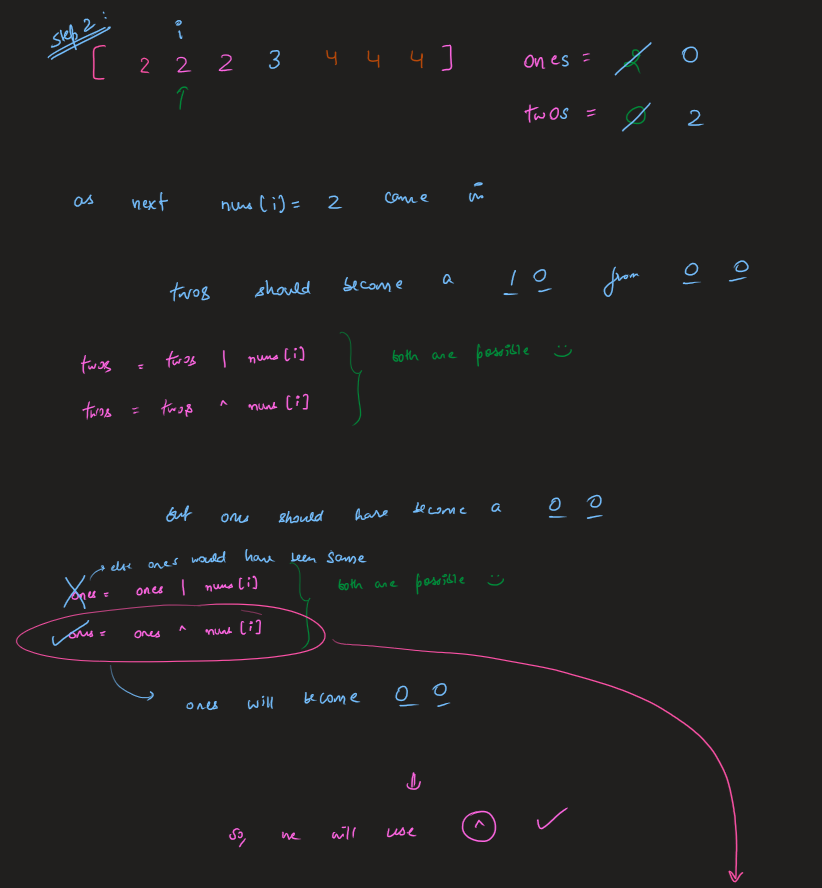 step 2:
i
[ 2 2 2 3 4 4 4 ] ones = 2 0
↑ twos = 0 2
as next nums[i] = 2 came in
twos should become a 1 0 from 0 0
twos = twos | nums[i]
both are possible :)
twos = twos ^ nums[i]
But ones should have become a 0 0
→ else ones would have been same
ones = ones | nums[i] both are possible :)
ones = ones ^ nums[i]
→ ones will become 0 0
↓
so, we will use ^ ✓